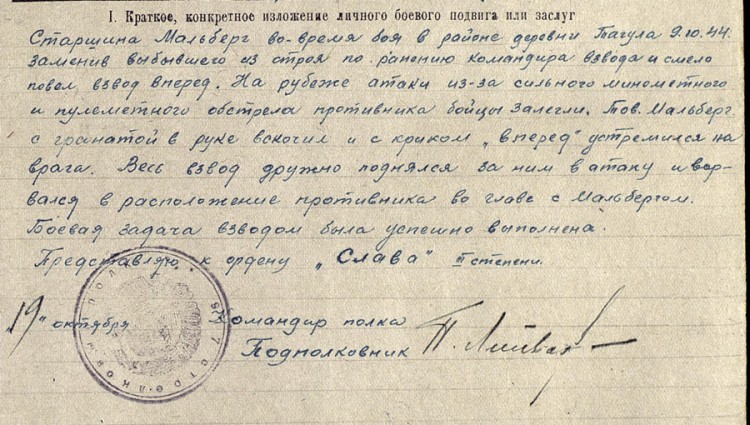 I. Краткое, конкретное изложение личного боевого подвига или заслуг
Старшина Мальберг во-время боя в районе деревни Тагула 9.10.44.
заменив выбывшего из строя по ранению командира взвода и смело
повел взвод вперед. На рубеже атаки из-за сильного минометного
и пулеметного обстрела противника бойцы залегли. Тов. Мальберг
с гранатой в руке вскочил и с криком „вперед" устремился на
врага. Весь взвод дружно поднялся за ним в атаку и вор-
вался в расположение противника во главе с Мальбергом.
Боевая задача взводом была успешно выполнена.
Представляю к ордену „Слава" II степени.
19" октября Командир полка
Подполковник